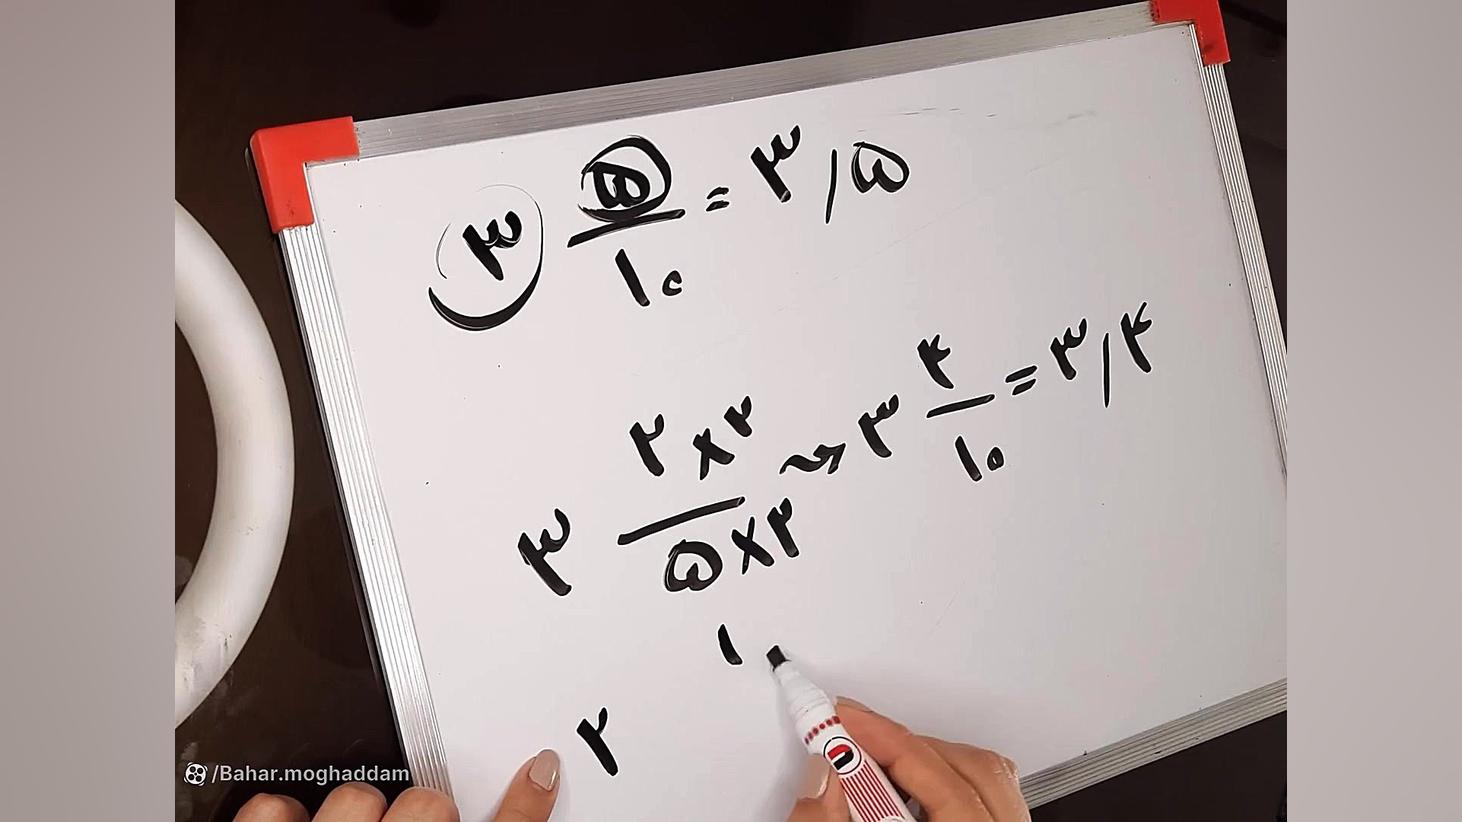 ۳ ۵/۱۰ = ۳/۵
۳ ۲×۲/۵×۲ ⇝ ۳ ۴/۱۰ = ۳/۴
۲ ۱
/Bahar.moghaddam